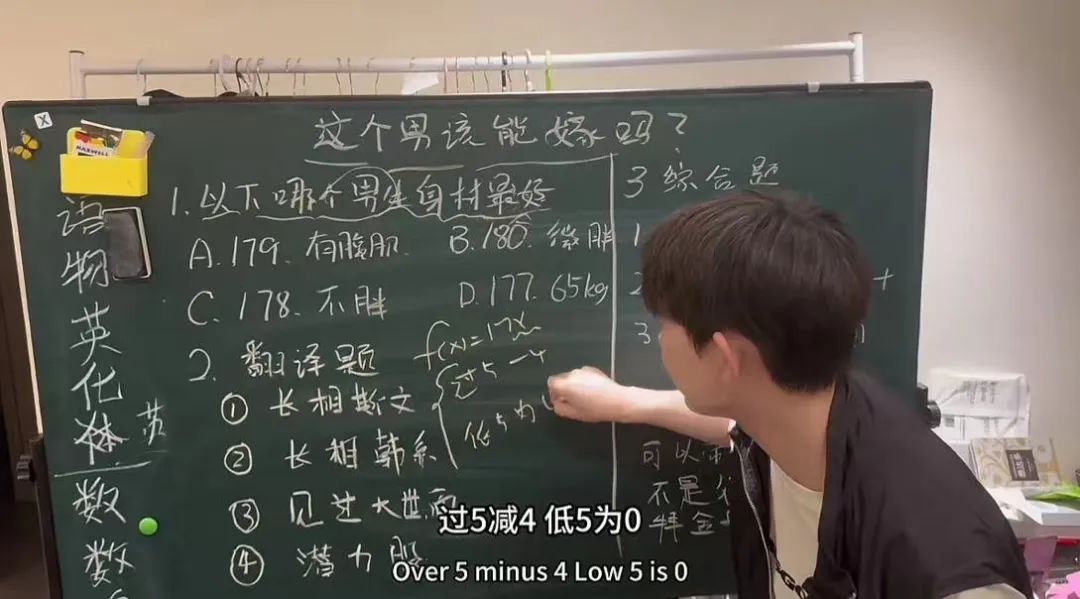 这个男孩能嫁吗?
语
物
英
化
体 英
数
数
1.以下哪个男生身材最好
A.179.有腹肌. B.180.微胖
C.178.不胖 D.177.65kg
2.翻译题
f(x)=17x
过5-4
低5为
① 长相斯文
② 长相韩系
③ 见过大世面
④ 潜力股
3综合题
1
2 +
3
可以
不是
过5减4 低5为0
Over 5 minus 4 Low 5 is 0
MAXWELL